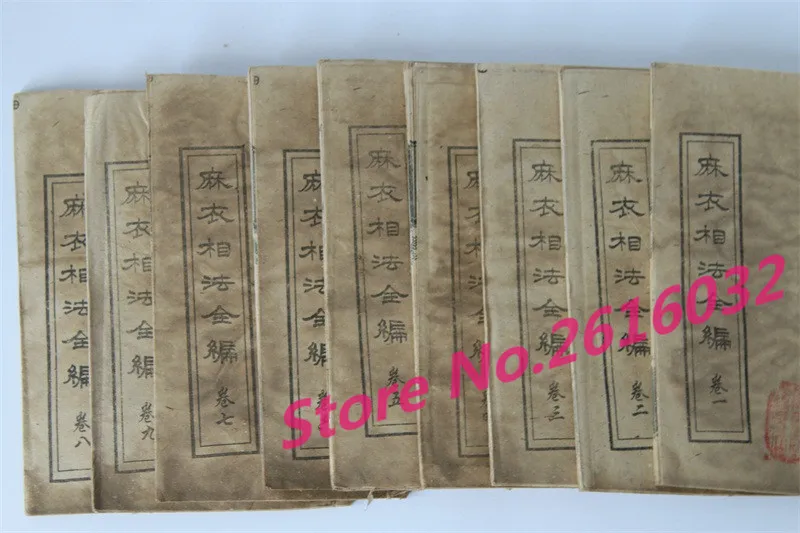 麻衣相法全編 卷八
麻衣相法全編 卷九
麻衣相法全編 卷七
麻衣相法全編
麻衣相法全編 卷五
麻衣相法全編 卷三
麻衣相法全編 卷二
麻衣相法全編 卷一
Store No.2616032